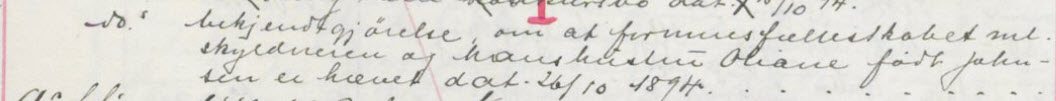 do.s bekjendtgjörelse, om at formuesfællesskabet ml.
skyldneren og hans hustru Oliane født John-
sen er hævet dat. 26/10 1894.